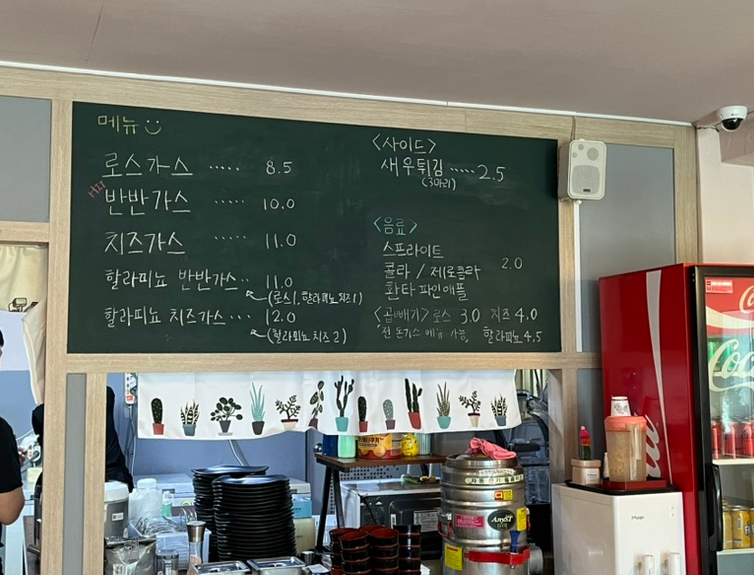 메뉴
로스가스 ····· 8.5
Hit 반반가스 ····· 10.0
치즈가스 ····· 11.0
할라피뇨 반반가스·· 11.0
(로스1, 할라피뇨치즈1)
할라피뇨 치즈가스··· 12.0
(할라피뇨 치즈2)
<사이드>
새우튀김 ····· 2.5
(3마리)
<음료>
스프라이트
콜라 / 제로콜라 2.0
환타파인애플
<곱빼기> 로스 3.0 치즈 4.0
전 돈가스 메뉴 가능, 할라피뇨 4.5
Coca
AnyST